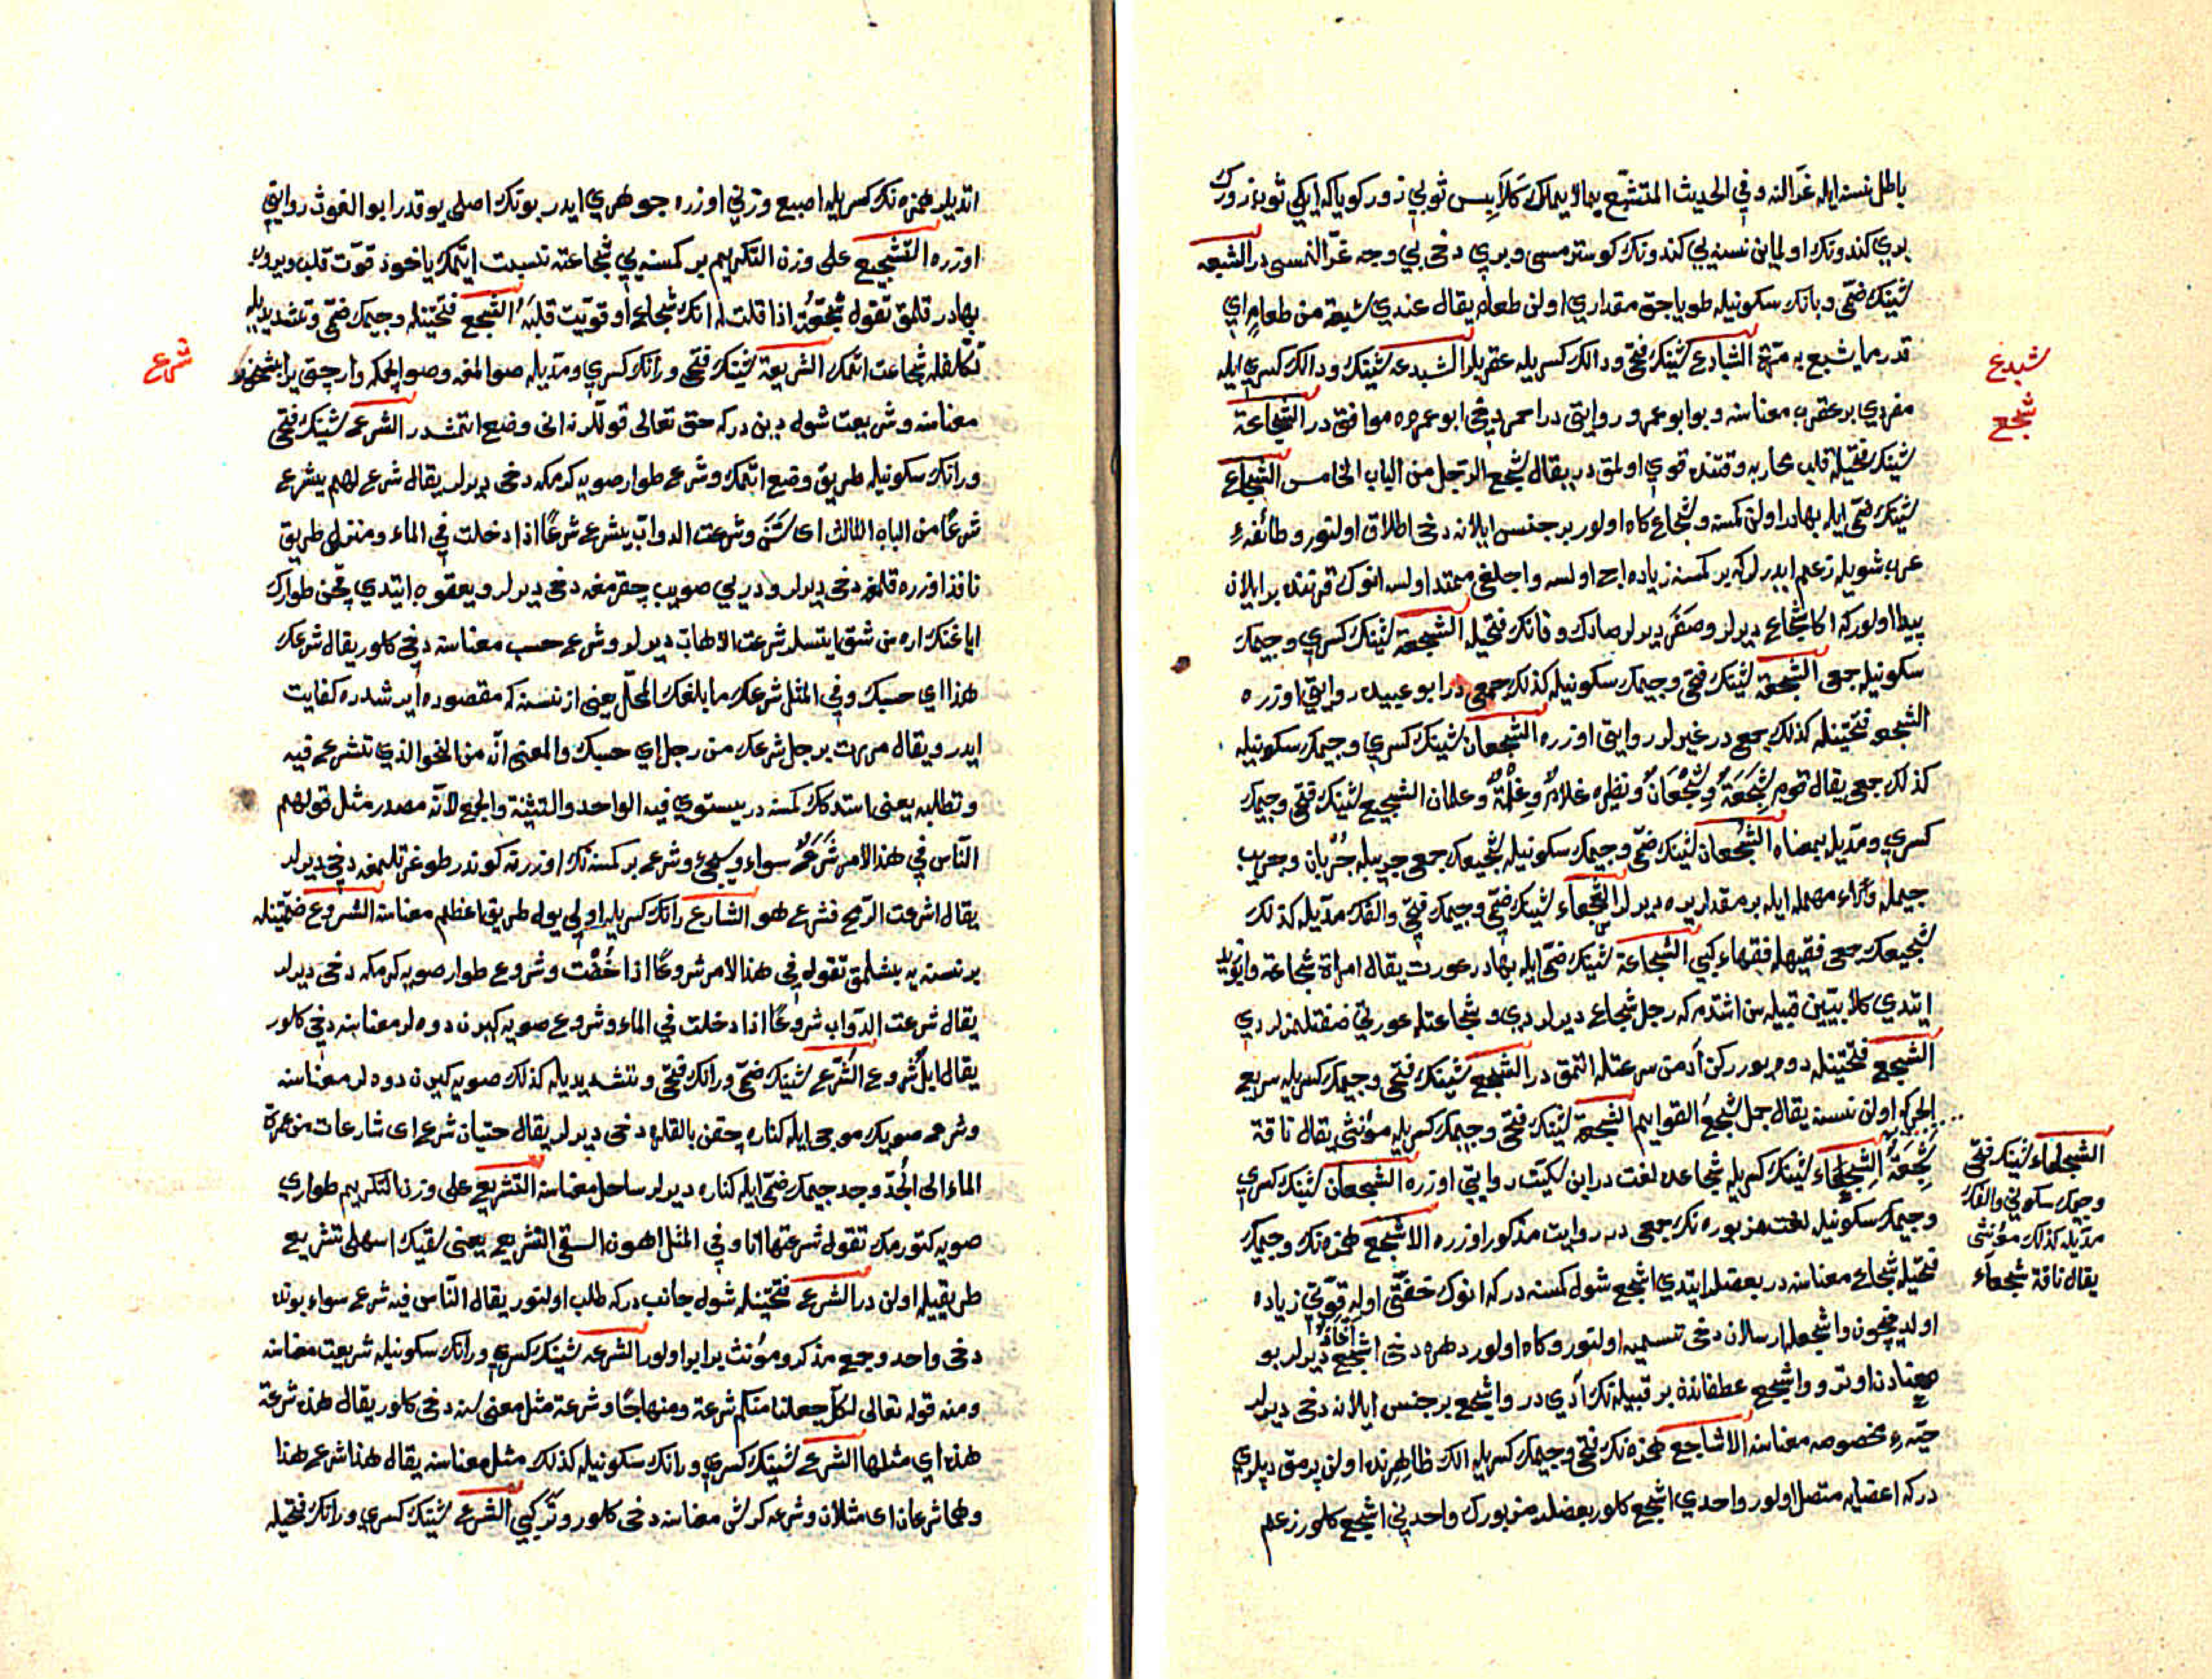 باطل نسنه ايله غرّالنه وفي الحديث المتشبّع بما لا يملك كلابس ثوبي زور كوياكه ايكي ثوب زورك
بري كندونك اولماين نسنه يي كندونك كوسترمسى وبري دخى بي وجه غرّالنمسى در الشبعه
شينك ضمّى وبانك سكونيله طوياجق مقدارى اولن طعام يقال عندي شبعة من طعام اي
قدر ما يشبع به مرّة الشبادع شينك فتحى ودالك كسريله عقربلر الشبدعه شينك ودالك كسري ايله
مفردي بر عقرب معناسنه وبو ابو عمرو روايتى در احمر دخى ابو عمروه موافق در الشجاعة
شينك فتحيله قلب محاربه وقتنده قوي اولمق در يقال شجع الرّجل من الباب الخامس الشجاع
شينك ضمّى ايله بهادر اولن كمسنه وشجاع كاه اولور بر جنس ايلانه دخى اطلاق اولنور وطائفهٔ
عرب شويله زعم ايدرلر كه بر كمسنه زياده اج اولسه واجلغى ممتد اولسه انوك قرننده بر ايلان
پيدا اولور كه اكا شجاع ديرلر وصفر ديرلر صادك وفانك فتحيله الشجعة شينك كسري وجيمك
سكونيله جمعى الشجعة شينك فتحى وجيمك سكونيله كذلك جمعى در ابو عبيده روايتى اوزره
الشجعه فتحتينله كذلك جمعى در غيرلر روايتى اوزره الشجعان شينك كسري وجيمك سكونيله
كذلك جمعى يقال قوم شجعة وشجعان ونظيره غلام وغلمة وغلمان الشجيع شينك فتحى وجيمك
كسري ومدّيله بمعناه الشجعان شينك ضمّى وجيمك سكونيله شجيعك جمعى جريبله جربان وجريب
جيمله وراء مهمله ايله بر مقدار يره ديرلر الشجعاء شينك ضمّى وجيمك فتحى والفك مدّيله كذلك
شجيعك جمعى فقيهله فقهاء كبي الشجاعة شينك ضمّى ايله بهادر عورت يقال امراة شجاعة وابو زيد
ايتدي كلابيّين قبيله سن اشتدم كه رجل شجاع ديرلر دي وشجاعتله عورتى صفتلمزلر دي
الشجع فتحتينله دوه يورركن آدمن سرعتله اتمق در الشجع شينك فتحى وجيمك كسريله سريع
الحركه اولن نسنه يقال جمل شجع القوايم الشجعة شينك فتحى وجيمك كسريله مؤنثى يقال ناقة
شجعة الشجعاء شينك كسريله شجاعده لغت در ابن سكيت روايتى اوزره الشجعان شينك كسري
وجيمك سكونيله لغت مزبوره نك جمعى در روايت مذكور اوزره الاشجع همزه نك وجيمك
فتحيله شجاع معناسنه در بعضلر ايتدي اشجع شول كمسنه در كه انوك خفّتى اوله قوّتى زياده
اولديغيچون واشجعله ارسلان دخى تسميه اولنور وكاه اولور دهره دخى اشجع ديرلر بو
معنادن اوترو واشجع غطفانده بر قبيله نك آدي در واشجع بر جنس ايلانه دخى ديرلر
حيّهٔ مخصوصه معناسنه الاشاجع همزه نك فتحى وجيمك كسريله الك ظاهرنده اولن پرمق ديپلري
در كه اعصابه متصل اولور واحدي اشجع كلور بعضلر مزبورك واحديني اشجع كلور زعم
شبدع
شجع
الشجعاء شينك فتحى
وجيمك سكونى والفك
مدّيله كذلك مؤنثى
يقال ناقة شجعاء
اتديلر همزه نك كسريله اصبع وزنى اوزره جوهري ايدر بونك اصلى يوقدر ابو الغوث روايتى
اوزره التشجيع على وزن التكريم بر كمسنه يي شجاعته نسبت ايتمك ياخود قوّت قلب ويروب
بهادر قلمق تقول شجّعته اذا قلت له انك شجاع او قوّيت قلبه التشجع فتحتينله وجيمك ضمّى وتشديديله
تكلّفله شجاعت اتمك الشريعة شينك فتحى ورانك كسري ومدّيله صو المق وصو ايچمكه وارجق ير
معناسنه وشريعت شول ديندر كه حق تعالى قوللرنه انى وضع اتمشدر الشرع شينك فتحى
ورانك سكونيله طريق وضع ايتمك وشرع طوار صويه كرمكه دخى ديرلر يقال شرع لهم يشرع
شرعًا من الباب الثالث اى سنّ وشرعت الدوابّ يشرع شرعًا اذا دخلت في الماء ومنزلى طريق
نافذ اوزره قلمغه دخى ديرلر ودريي صويوب چقرمغه دخى ديرلر ويعقوب ايتدي قچن طوارك
اياغنك اره سن شق ايتسلر شرعت الاهاب ديرلر وشرع حسب معناسنه دخى كلور يقال شرعك
هذا اي حسبك وفي المثل شرعك ما بلغك المحلّ يعنى از نسنه كه مقصوده ايرشدره كفايت
ايدر ويقال مررت برجل شرعك من رجل اي حسبك والمعنى انّه من النحو الذي تشرع فيه
وتطلبه يعنى استدكك كمسنه در يستوي فيه الواحد والتثنية والجمع لانّه مصدر مثل قولهم
النّاس في هذا الامر شرع سواء وشرع بر كمسنه نك اوزرنه كوندر طوغرتلمغه دخى ديرلر
يقال اشرعت الرّمح فشرع هو الشارع رانك كسريله اولى يوله طريق اعظم معناسنه الشروع ضمّتينله
بر نسنه يه بشلمق تقول في هذا الامر شروعًا اذا خضت وشروع طوار صويه كرمكه دخى ديرلر
يقال شرعت الدّواب شروعًا اذا دخلت في الماء وشروع صويه كيرن دوه لر معناسنه دخى كلور
يقال ابل شروع الشّرّع شينك ضمّى ورانك فتحى وتشديديله كذلك صويه كيرن دوه لر معناسنه
وشرع صويك موجى ايله كناره چقن بالقلره دخى ديرلر يقال حيتان شرع اى شارعات من غمرة
الماء الى الجدّ وجد جيمك ضمّى ايله كناره ديرلر ساحل معناسنه التشريع على وزن التكريم طوارى
صويه كتورمك تقول شرعتها انا وفي المثل اهون السقى التشريع يعنى سقينك اسهلى تشريع
طريقيله اولن در الشرع فتحتينله شول جانب در كه طلب اولنور يقال النّاس فيه شرع سواء بونده
دخى واحد وجمع مذكر ومؤنث برابر اولور الشرعه شينك كسري ورانك سكونيله شريعت معناسنه
ومنه قوله تعالى لكلّ جعلنا منكم شرعة ومنهاجًا وشرعة مثل معنى سنه دخى كلور يقال هذه شرعة
هذه اي مثلها الشرع شينك كسري ورانك سكونيله كذلك مثل معناسنه يقال هذا شرع هذا
وهما شرعان اى مثلان وشرعه كرش معناسنه دخى كلور وتر كبي الشرع شينك كسري ورانك فتحيله
شرع